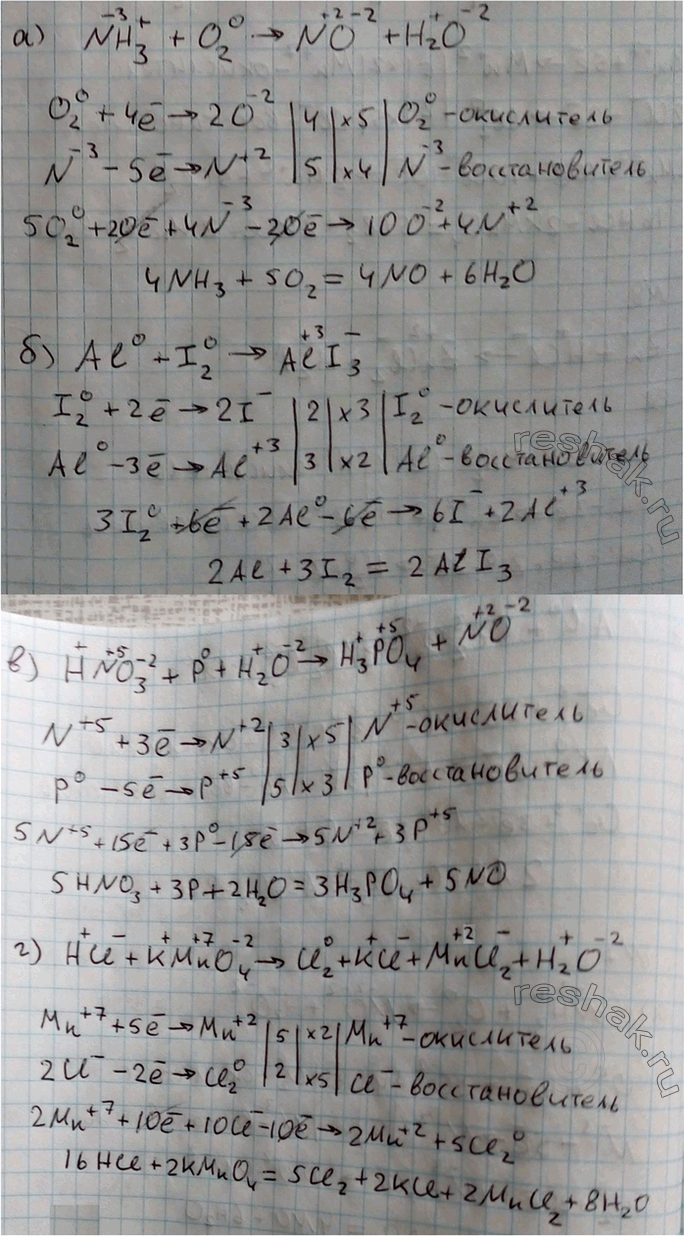 а) N⁻³H₃⁺ + O₂⁰ → N⁺²O⁻² + H₂⁺O⁻²
O₂⁰ + 4ē → 2O⁻² | 4 | ×5 | O₂⁰ - окислитель
N⁻³ - 5ē → N⁺² | 5 | ×4 | N⁻³ - восстановитель
5O₂⁰ + 20ē + 4N⁻³ - 20ē → 10O⁻² + 4N⁺²
4NH₃ + 5O₂ = 4NO + 6H₂O
б) Al⁰ + I₂⁰ → Al⁺³I₃⁻
I₂⁰ + 2ē → 2I⁻ | 2 | ×3 | I₂⁰ - окислитель
Al⁰ - 3ē → Al⁺³ | 3 | ×2 | Al⁰ - восстановитель
3I₂⁰ + 6ē + 2Al⁰ - 6ē → 6I⁻ + 2Al⁺³
2Al + 3I₂ = 2AlI₃
reshak.ru
в) H⁺N⁺⁵O₃⁻² + P⁰ + H₂⁺O⁻² → H₃⁺P⁺⁵O₄ + N⁺²O⁻²
N⁺⁵ + 3ē → N⁺² | 3 | ×5 | N⁺⁵ - окислитель
P⁰ - 5ē → P⁺⁵ | 5 | ×3 | P⁰ - восстановитель
5N⁺⁵ + 15ē + 3P⁰ - 15ē → 5N⁺² + 3P⁺⁵
5HNO₃ + 3P + 2H₂O = 3H₃PO₄ + 5NO
г) H⁺Cl⁻ + K⁺Mn⁺⁷O₄⁻² → Cl₂⁰ + K⁺Cl⁻ + Mn⁺²Cl₂⁻ + H₂⁺O⁻²
Mn⁺⁷ + 5ē → Mn⁺² | 5 | ×2 | Mn⁺⁷ - окислитель
2Cl⁻ - 2ē → Cl₂⁰ | 2 | ×5 | Cl⁻ - восстановитель
2Mn⁺⁷ + 10ē + 10Cl⁻ - 10ē → 2Mn⁺² + 5Cl₂⁰
16HCl + 2KMnO₄ = 5Cl₂ + 2KCl + 2MnCl₂ + 8H₂O
reshak.ru